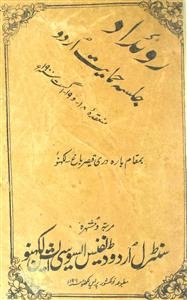 روئداد
جلسہ حمایت اردو
منعقدہ ۱۸ و ۱۹ اگست سنہ ۱۹۰۰ء
بمقام بارہ دری قیصر باغ لکھنؤ
مرتبہ و مشتہرہ
سنٹرل اردو ڈیفنس ایسوسی ایشن لکھنؤ